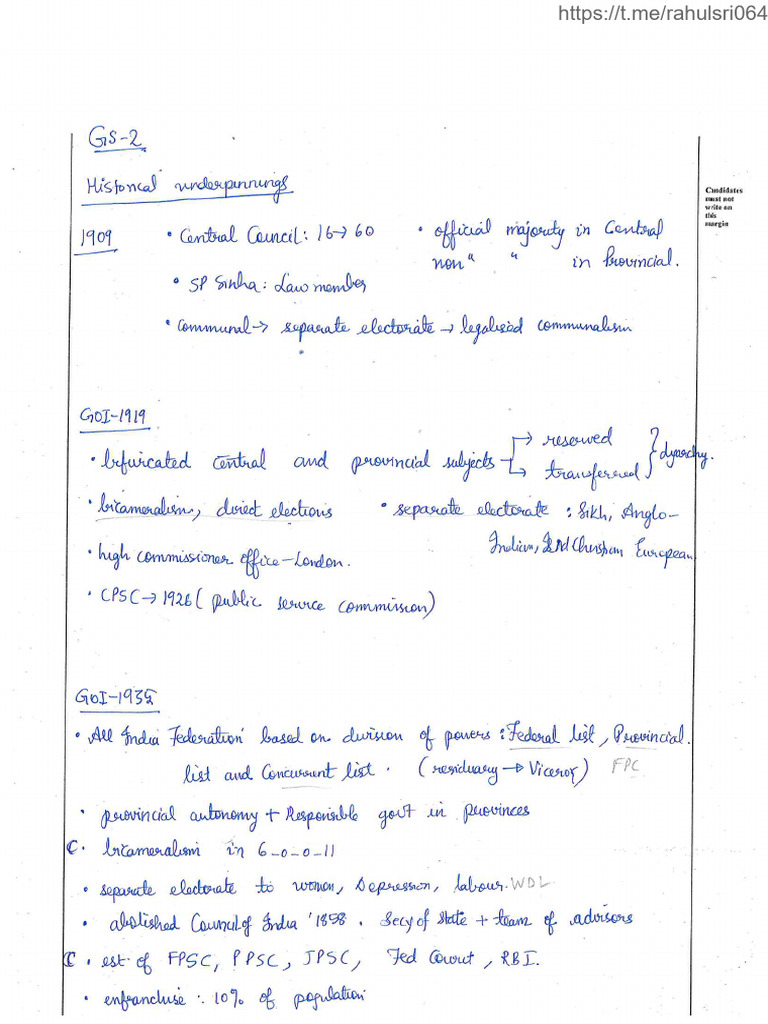 https://t.me/rahulsri064
GS-2
Historical underpinnings
Candidates
must not
write on
this
margin
1909
• Central Council: 16→60
• official majority in Central
non " " in Provincial.
• SP Sinha: Law member
• Communal → separate electorate → legalised communalism
GOI-1919
• bifurcated central and provincial subjects → reserved
→ transferred } dyarchy.
• bicameralism, direct elections
• separate electorate : Sikh, Anglo-
Indian, Ind Christian European
• high commissioner office - London.
• CPSC → 1926 ( public service commission)
GOI-1935
• All India Federation based on division of powers : Federal list, Provincial
list and Concurrent list. (residuary → Viceroy) FPC
• provincial autonomy + Responsible govt in provinces
C. bicameralism in 6-0-0-11
• separate electorate to women, Depression, labour. WDL
• abolished Council of India '1858. Secy of State + team of advisors
• est of FPSC, PPSC, JPSC, Fed Court, RBI.
• enfranchise : 10% of population